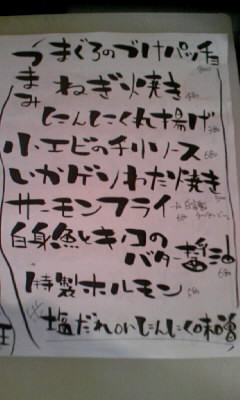 つまみ
まぐろのづけパッチョ
ねぎ焼き
にんにくれ揚げ
小エビのチリソース 680
いかゲソわた焼き
サーモンフライ
白身魚とキノコの
バター醤油 680
特製ホルモン 680
塩だれorにんにく味噌